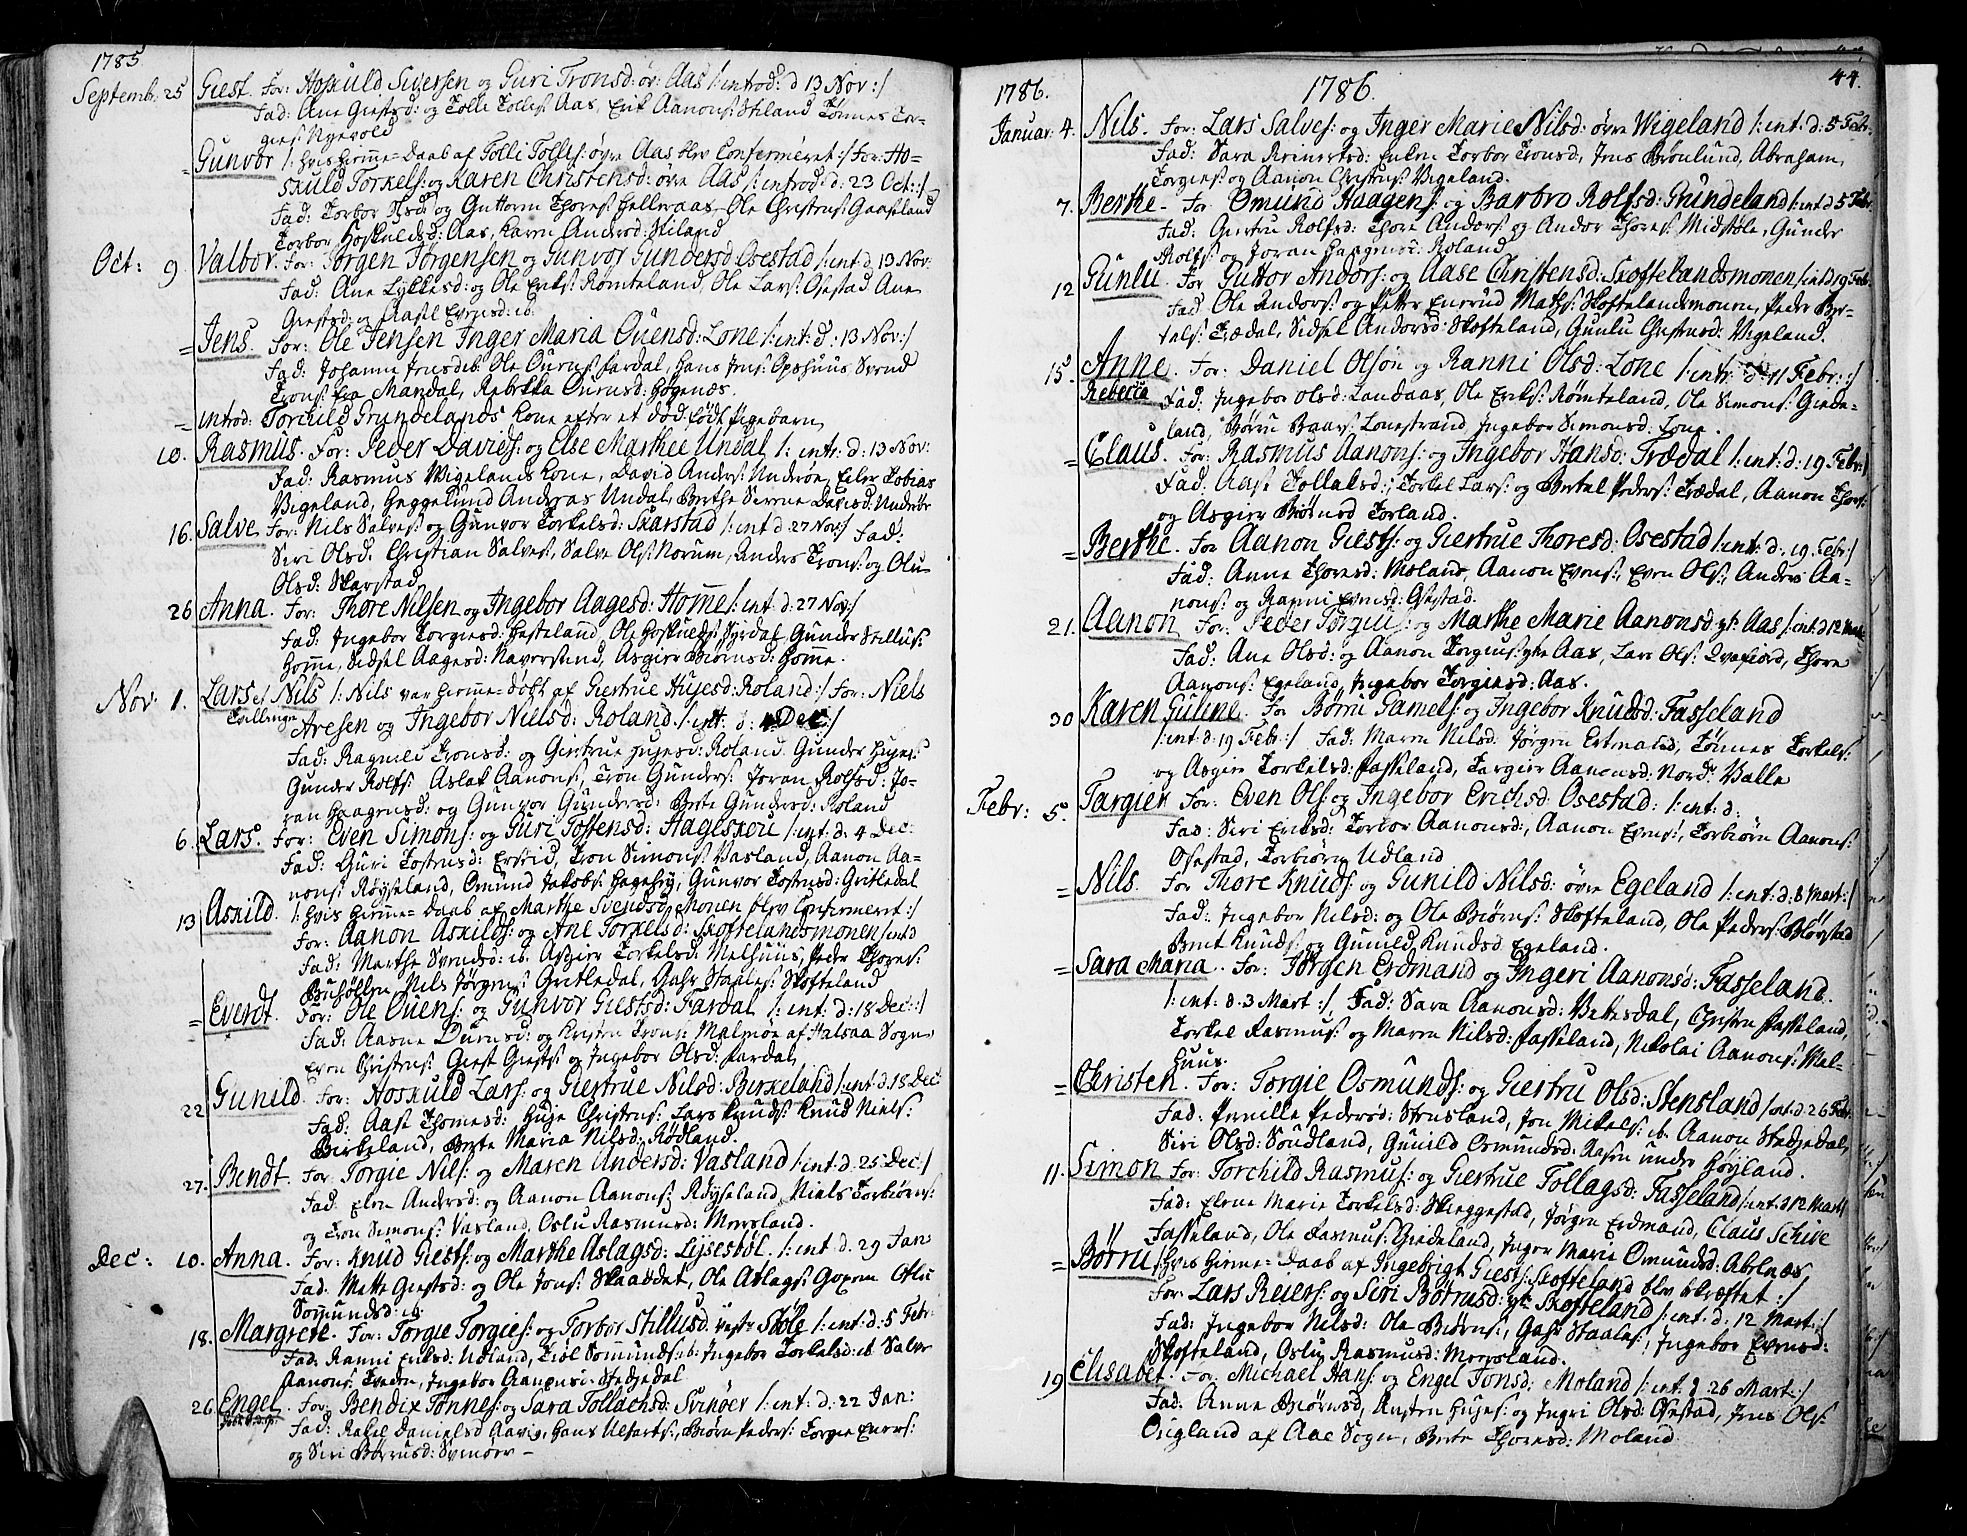 1785
Septemb: 25 Giest. For: Hoskuld Siversen og Guri Tronsd: øv: Aas /: introd: d 13 Nov :/
Fad: Ane Giestsd: og Tolli Tolles: Aas, Erik Aanons: Stiland Tønnes Tor-
gies: Nyevold
= Gunvor /: hvis hiemme-Daab af Tolli Tolles: øvre Aas blev Confirmeret :/ For: Ho-
skuld Torkels: og Karen Christensd: øvre Aas /: introd: d: 23 Oct: :/
Fad: Torbor Olsd: og Guttorm Thores: Helleraas, Ole Christens: Gaaseland
Torbor Hoskuldsd: Aas, Karen Andersd: Stiland
Oct: 9 Valbor. For: Jørgen Jørgensen og Gunvor Gundersd: Osestad /: int: d 13 Nov:
Fad: Ane Lykkesd: og Ole Eriks: Rømteland, Ole Lars: Osestad Ane
Giestsd: og Aasil Evensd: ib.
= Jens. For: Ole Jensen Inger Maria Ovensd: Lone /: int: d: 13 Nov :/
Fad: Johanna Jensd: ib: Ole Ouens: Fardal, Hans Jens: Opshuus, Svend
Trons: fra Mandal, Rebekka Ouensd: Høgenæs.
= introd: Torchild Grundelands Kone efter et død-født Pigebarn
10. Rasmus. For: Peder Davids: og Else Marthee Undal /: intr: d: 13 Nov:
Fad: Rasmus Wigelands Kone, David Anders: Underøe, Eiler Tobias
Vigeland, Andreas Undal, Berthe Serene Davidsd: Underøe
16. Salve For: Nils Salves: og Gunvor Torkelsd: Skarstad /: int: d 27 Nov: :/ Fad:
Seri Olsd. Christian Salves:, Salve Ols: Norum, Anders Trons: og Olu
Olsd: Skarstad
26 Anna. For: Thore Nilsen og Ingebor Aagesd: Homme /: int: d: 27 Nov: :/
Fad: Ingebor Torgiesd: Hesteland, Ole Hoskulds: Hyrdal, Gunder Stillufs:
Homme, Sidsel Aagesd: Naverstend, Asgier Biørnsd: Homme.
Nov 1. Lars et Nils /: Nils var hiemme-døbt af Giertrue Hujesd: Roland :/ For: Niels
Tvillinge Aresen og Ingebor Nielsd: Roland /: int: d: 4 Dec: :/
Fad: Ragnild Tronsd: og Giertrue Hujesd: Roland Gunder Hujes:
Gunder Rolfs: Aslak Aanons:, Tron Gunders: Joran Rolfsd: Jo-
ran Haagensd: og Gunvor Gundersd: Berte Gundersd: Roland
6. Lars. For: Even Simons: og Guri Tostensd: Hageskou /: int: d. 4 Dec:
Fad: Guri Tostensd: Erstid, Tron Simons: Vasland, Aanon Aa-
nons: Røyseland, Omund Jakobs: Hagehøy, Gunvor Tostensd: Gritledal
13 Askild. /: hvis hiemme-Daab af Marthe Svendsd: Monen blev Confirmeret :/
For: Aanon Askilds: og Ane Torkelsd: Skoftelandsmonen /: int d
Fad: Marthe Svendsd: ib. Asgier Torkelsd: Melhuus, Peder Thores:
Buhøllen, Nils Jørgens: Gritledal, Gahr Staales: Skofteland
= Everdt. For: Ole Ouens: og Gunvor Giestsd: Fardal /: int: d: 18 Dec: :/
Fad: Aasne Ouensd: og Kristen Trons: Malmøe af Halsaa Sogn
Even Christens: Giest Giests: og Ingebor Olsd: Fardal
22 Gunild. For: Hoskuld Lars: og Giertrue Nilsd: Birkeland /: int: d. 18 Dec
Fad: Aase Thomesd: Huje Christens: Lars Knuds: Knud Niels:
Birkeland, Berte Maria Nilsd: Rødland.
27. Bendt. For: Torgie Nils: og Maren Andersd: Vasland /: int: d. 25 Dec: :/
Fad: Elen Andersd: og Aanon Aanons: Røyseland, Niels Torbiørns:
og Tron Simons: Vasland, Oslu Rasmusd: Moersland.
Dec: 10. Anna. For: Knud Giests: og Marthe Aslagsd: Lysestøl. /: int: d. 29 Jan
Fad. Mette Giestsd: og Ole Jons: Skaardet, Ole Aslags: Olu
Somundsd: ib.
18. Margrete. For: Torgie Torgies: og Torbor Stillufsd. vestr Støle /: int: d: 5 Febr:
Fad: Ranni Eriksd: Udland, Kiøl Somunds: ib: Ingebor Torkelsd: ib Salve
Aanons: Tveden, Ingebor Aanonsd: Stedjedal
26. Engel. For: Bendix Tønnes: og Sara Tollachsd: Svinøer /: int: d: 22 Jan:
Fad: Rakel Danielsd: Aavig, Hans Ulfarts:, Biørn Peders: Torgie Eners:
og Siri Børrusd: Svinøer -
44.
1786. 1786.
Januar: 4. Nils. For: Lars Salves: og Inger Marie Nilsd: øvre Wigeland /: int: d: 5 Febr.
Fad: Sara Reinertsd: Enken Torbor Tronsd:, Jens Brønlund, Abraham
Torgies: og Aanon Christens: Vigeland.
7. Berthe - For Omund Haagens: og Barbro Rolfsd: Grundeland /: int d 5 Febr
Fad: Giertru Rolfsd: Thore Andors: og Andor Thores: Midstøle, Gunder
Rolfs: og Joran Haagensd: Roland
12 Gunlu. For Guttor Andors: og Aase Christensd: Skoftelandsmonen /: int d 19 Febr
Fad Ole Andors: og Petter Enerud Maths: Skoftelandsmonen, Peder Ber-
tels: Trædal, Sidsel Andorsd: Skofteland, Gunlu Christensd: Vigeland.
15. Anne For: Daniel Olson og Ranni Olsd: Lone /: intr: d: 11 Febr: :/
Rebecca Fad: Ingebor Olsd: Landaas, Ole Eriks: Rømteland, Ole Simons: Giede-
land, Børru Baars: Lonestrand, Ingebor Simonsd: Lone.
= Claus. For: Rasmus Aanons: og Ingebor Hansd: Trædal /: int: d: 19 Febr: :/
Fad: Aase Tollaksd:, Torkel Lars: og Bertel Peders: Trædal, Aanon Thors:
og Asgier Biørnsd Torland.
= Berthe. For Aanon Giests: og Giertrue Thoresd: Osestad /: int: d. 19 Febr: :/
Fad: Anne Thoresd: Moland, Aanon Evens:, Even Ols:, Anders Aa-
nons: og Ranni Evensd: Osestad.
21. Aanon For: Peder Torgius: og Marthe Marie Aanonsd: yt: Aas /: int: d 12 Mart:
Fad: Ane Olsd: og Aanon Torgius: yttre Aas, Lars Ols: Qvafiord, Thore
Aanons: Egeland, Ingebor Torgiesd: Aas.
30 Karen Gulene. For Børru Gamels: og Ingebor Knudsd: Fasseland
/: int: d: 19 Febr: :/ Fad: Maren Nilsd: Jørgen Ertmand, Tønnes Torkels:
og Asgier Torkelsd: Fasseland, Targier Aanonsd: Nord: Valle
Febr: 5. Targier For: Even Ols: og Ingebor Erichsd: Osestad: /: int: d:
Fad: Siri Eriksd: Torbor Aanonsd:, Aanon Evens:, Torbiørn Aanons:
Osestad, Torbiørn Udland
= Nils. For Thore Knuds: og Gunild Nilsd: øvre Egeland /: int: d: 8 Mart: :/
Fad: Ingebor Nilsd: og Ole Biørns: Skofteland, Ole Peders: Bløystad
Berit Knudsd: og Gunild Knudsd Egeland.
= Sara Maria. For: Jørgen Erdmand og Ingeri Aanonsd: Fasseland.
/: int: d: 3 Mart :/, Fad: Sara Aanonsd: Birkedal, Christen Fasseland,
Torkel Rasmus: og Maren Nilsd: Fasseland, Nikolai Aanons: Mel-
huus.
= Christen. For: Torgie Osmunds: og Giertru Olsd: Stensland /: int: d. 26 Febr:
Fad: Pernille Pedersd: Stensland, Jon Mikels: ib. Aanon Stedjedal,
Siri Olsd: Soudland, Gunild Osmundsd: Aasen under Høyland.
11. Simon For: Torchild Rasmus: og Giertrue Tollagsd: Fasseland /: int: d 12 Mart /
Fad: Elene Marie Torkelsd: Skieggestad, Jørgen Erdmand, Claus Schive
Fasseland, Ole Rasmus: Giedeland, Inger Marie Omundsd: Abelnæs
= Børru /: hvis hieme-Daab af Ingebrigt Giests: Skofteland blev bekræftet :/
For: Lars Reiers: og Siri Børrusd: yt: Skofteland /: int: d: 12 Mart: :/
Fad: Ingebor Nilsd: Ole Biørns:, Gahr Staales:, Ingebor Evensd:
Skofteland, Oslu Rasmusd: Moersland.
19 Elisabet. For: Michael Hans: og Engel Tonsd: Moland /: int: d: 26 Mart: :/
Fad: Anne Biørnsd, Austen Hujes: og Ingri Olsd: Osestad, Jens Ols:
Ougland af Aae Sogn, Berte Thoresd: Moland